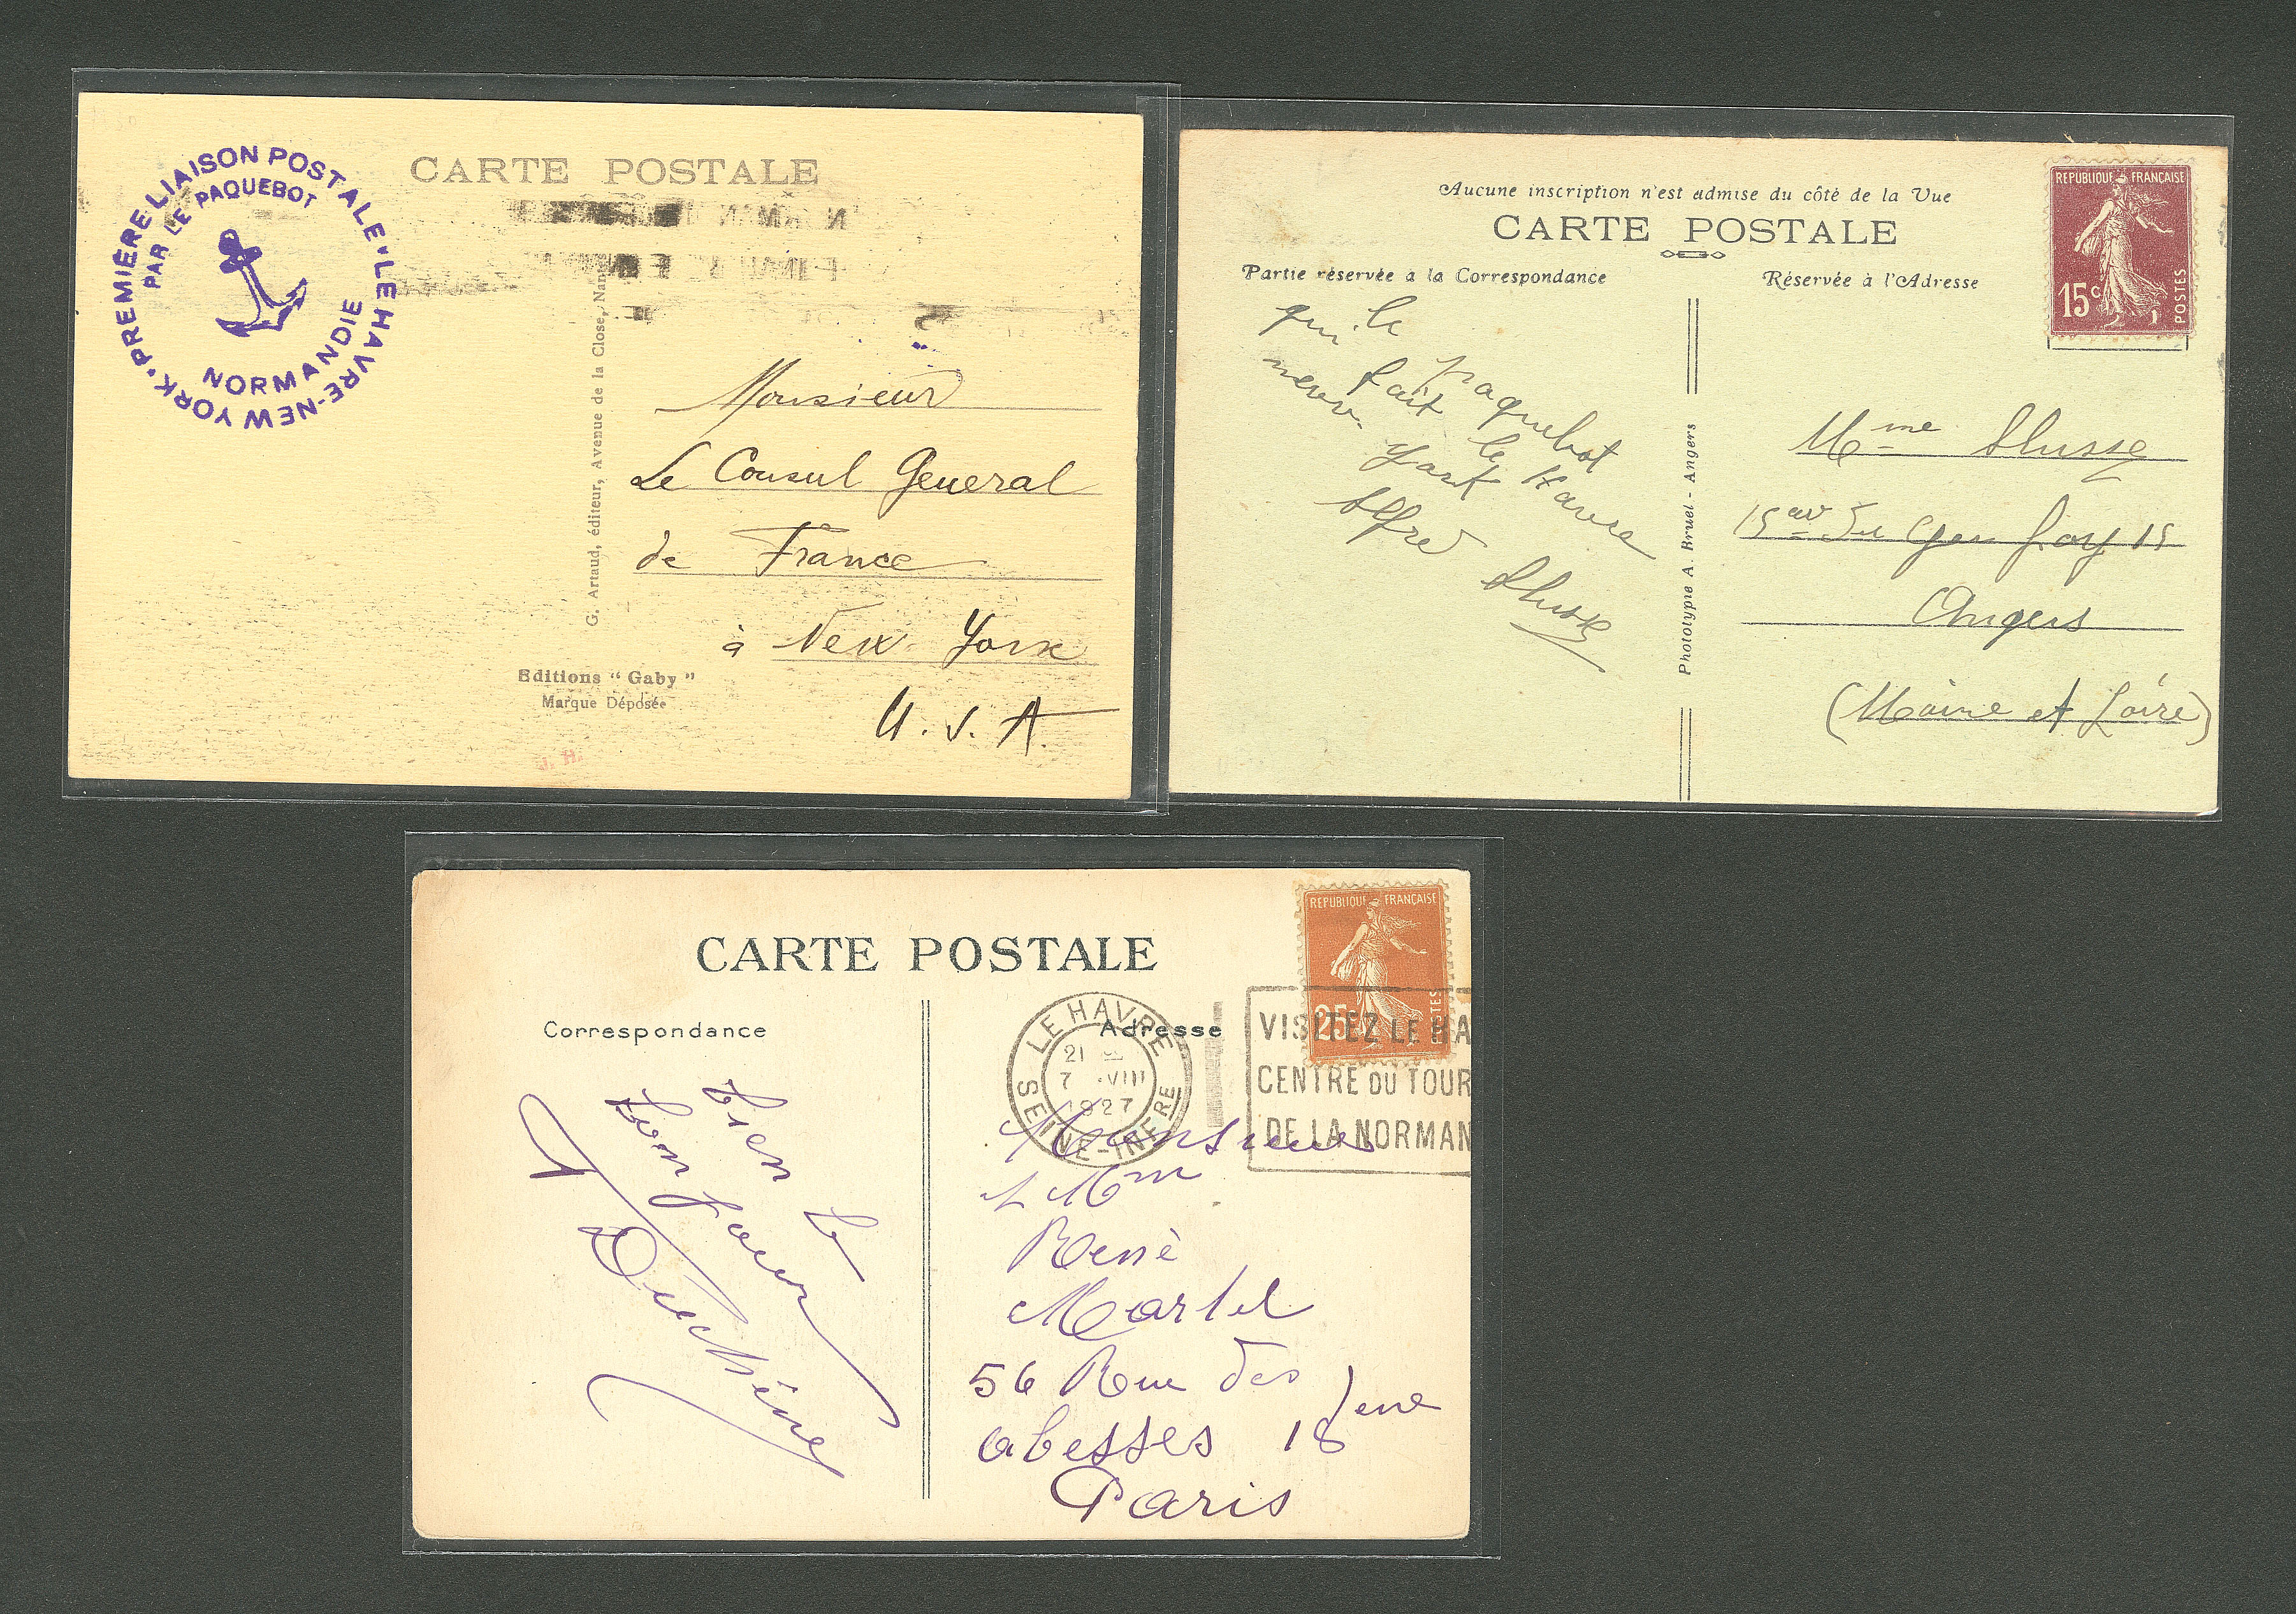 PREMIERE LIAISON POSTALE • LE HAVRE-NEW YORK •
PAR LE PAQUEBOT
NORMANDIE
CARTE POSTALE
G. Artaud, éditeur, Avenue de la Close, Nan
Monsieur
Le Consul General
de France
à New York
U.S.A.
Editions " Gaby "
Marque Déposée
J. H.
Aucune inscription n'est admise du côté de la Vue
CARTE POSTALE
Partie réservée a la Correspondance
Réservée à l'Adresse
REPUBLIQUE FRANÇAISE
15c
POSTES
le paquebot
qui fait le Havre
new-york
Alfred
Phototypie A. Bruel - Angers
Mme
15 av du Gen Foy 15
Angers
(Maine et Loire)
CARTE POSTALE
Correspondance
Adresse
REPUBLIQUE FRANÇAISE
25
POSTES
LE HAVRE
21
7 VIII
1927
SEINE-INFRE
VISITEZ LE HA
CENTRE DU TOUR
DE LA NORMAN
bien le
bonjour
Duchêne
Monsieur
Mm
René
Martel
56 Rue des
abesses 18eme
Paris